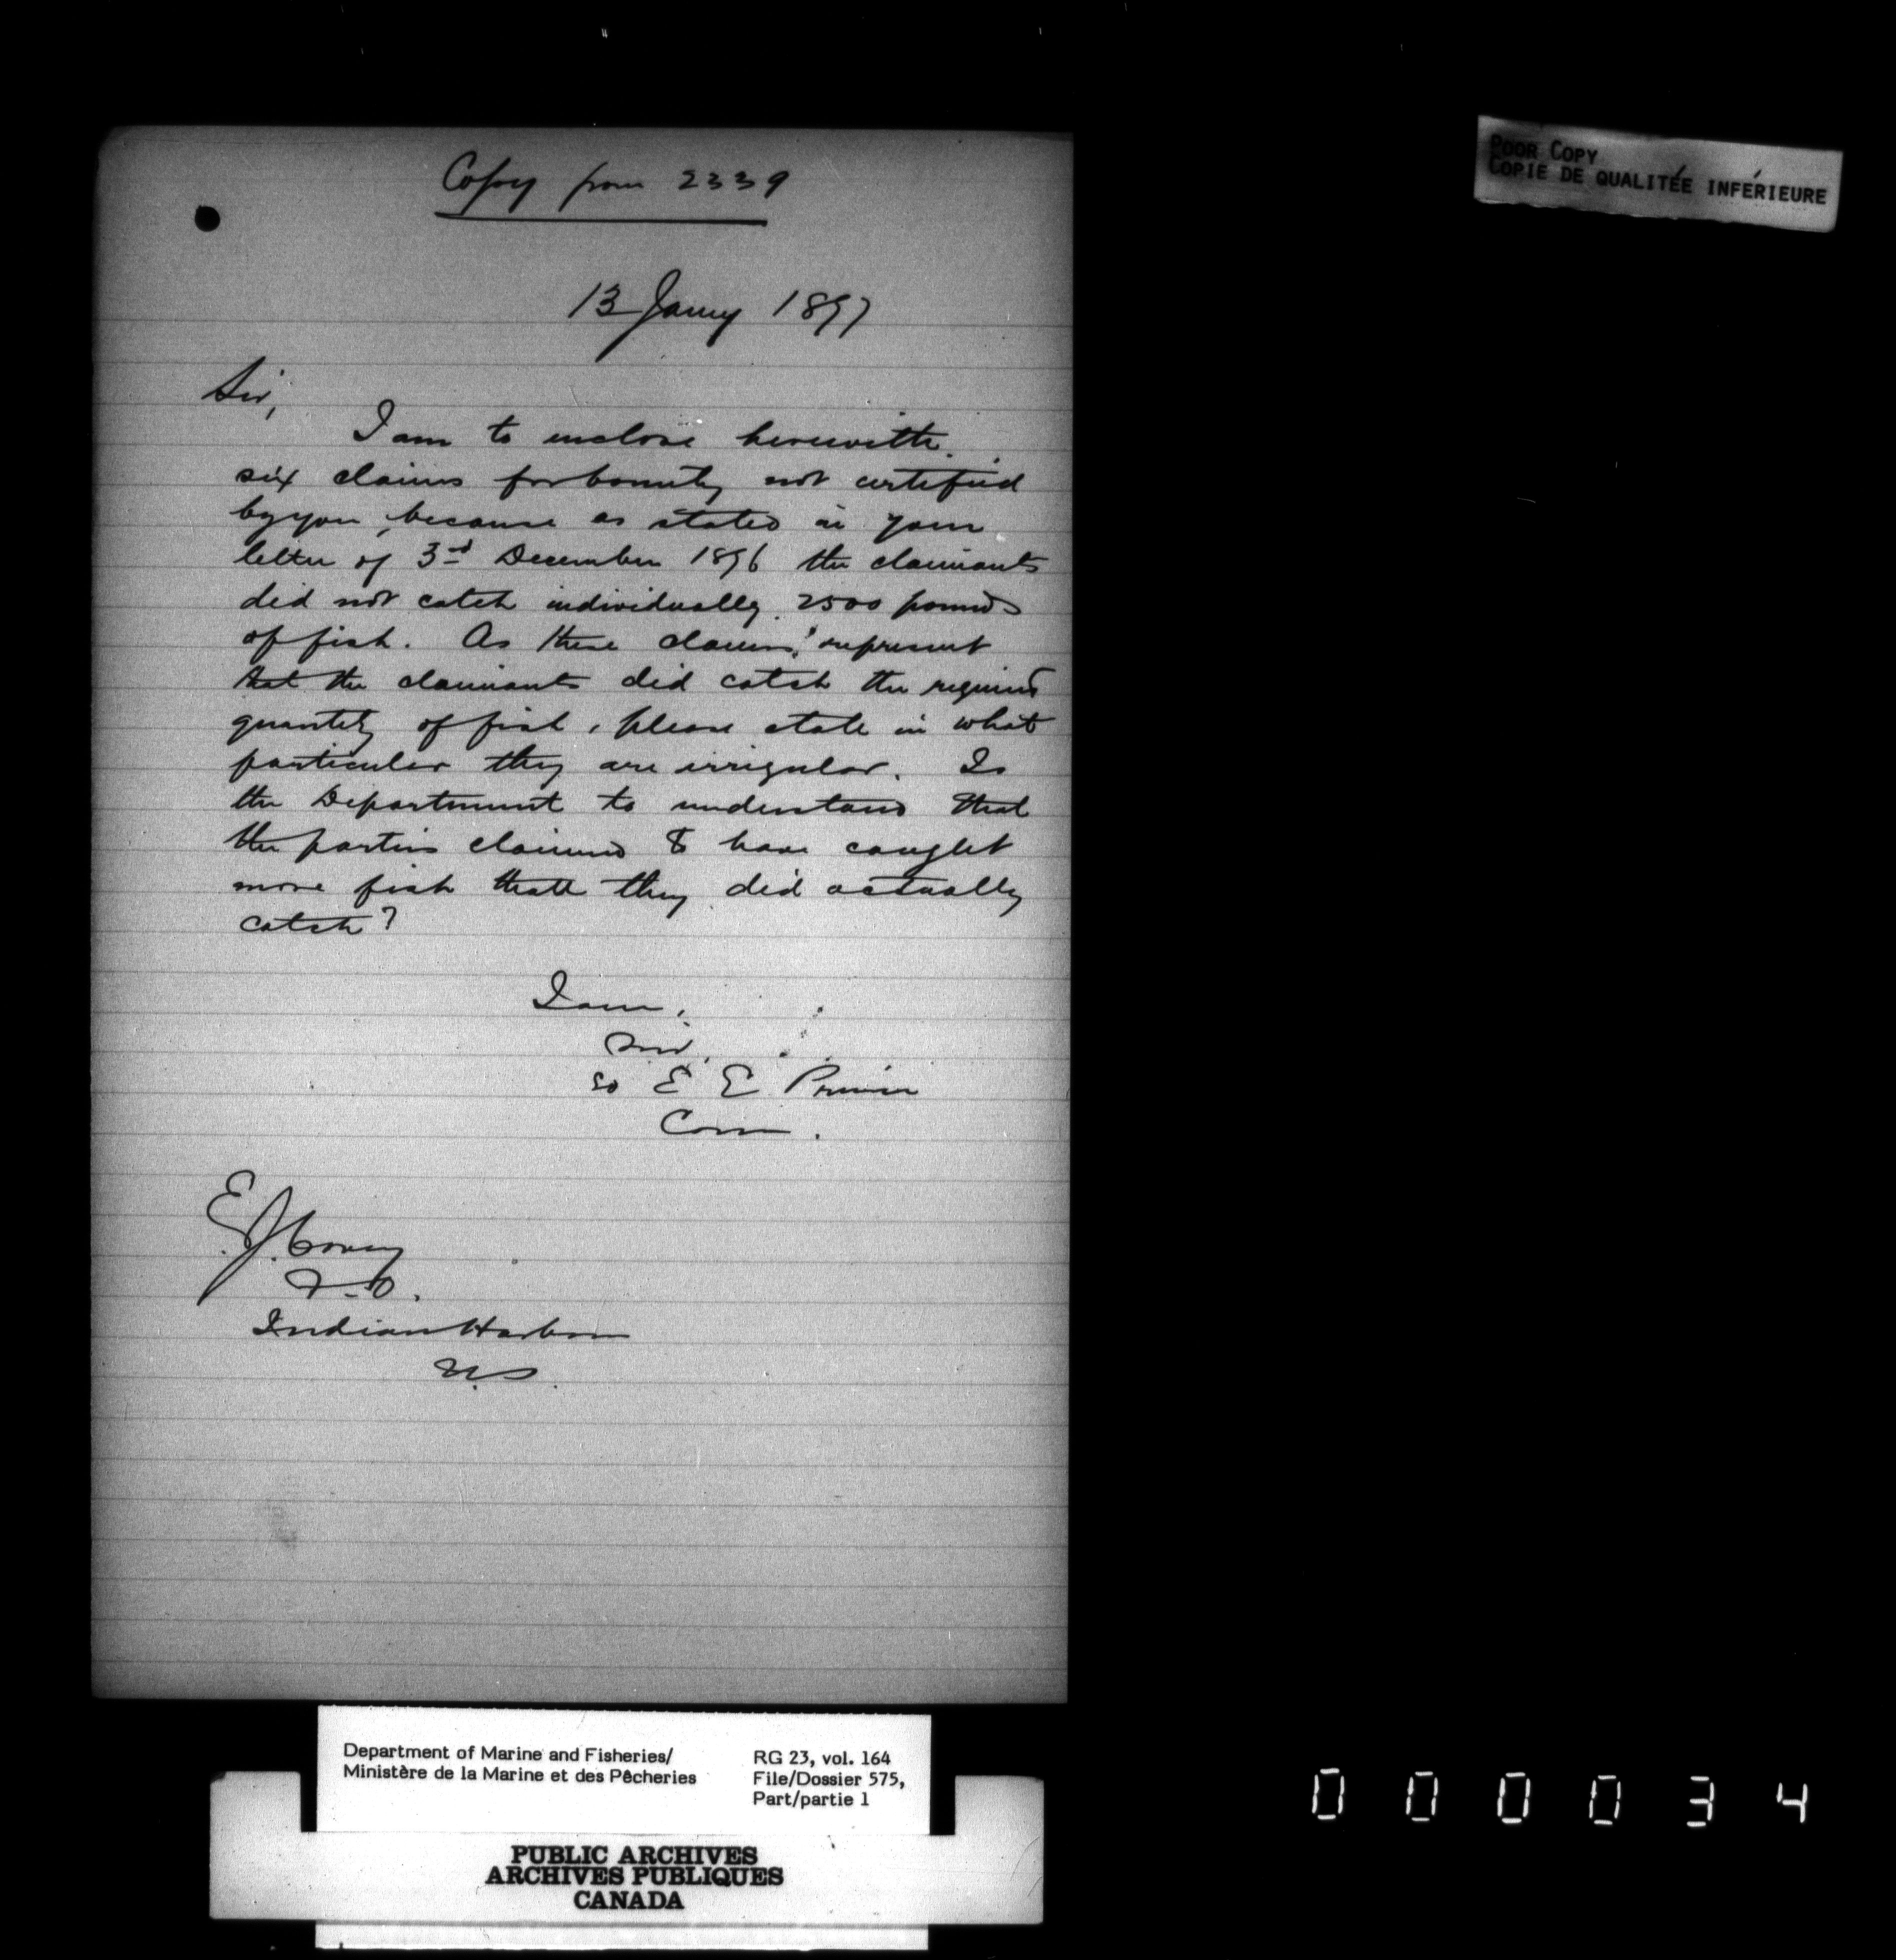 Copy from 2339
POOR COPY
COPIE DE QUALITÉE INFÉRIEURE
13 Jany 1897
Sir,
I am to enclose herewith
six claims for bounty not certified
by you, because as stated in your
letter of 3rd December 1896 the claimants
did not catch individually 2500 pounds
of fish. As these claims represent
that the claimants did catch the required
quantity of fish, please state in what
particular they are irregular. Is
the Department to understand that
the parties claimed to have caught
more fish than they did actually
catch?
I am,
Sir,
E E Prince
Com.
E. J. Covey
F-O.
Indian Harbour
N.S.
Department of Marine and Fisheries/
Ministère de la Marine et des Pêcheries
RG 23, vol. 164
File/Dossier 575,
Part/partie 1
PUBLIC ARCHIVES
ARCHIVES PUBLIQUES
CANADA
000034